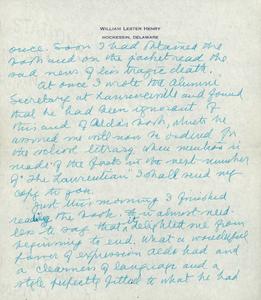 WILLIAM LESTER HENRY
HOCKESSIN, DELAWARE
once. Soon I had obtained the
book and on the jacket read the
sad news of his tragic death.
At once I wrote the Alumni
Secretary at Lawrenceville and found
that he had been ignorant of
this and of Aldo's book, which he
assured me will now be ordered for
the school library when mention is
made of the facts in the next number
of "The Lawrentian" I shall send my
copy to you.
Just this morning I finished
reading the book. It is almost need-
less to say that it delighted me from
beginning to end. What a wonderful
power of expression Aldo had and
a clearness of language and a
style perfectly fitted to what he had